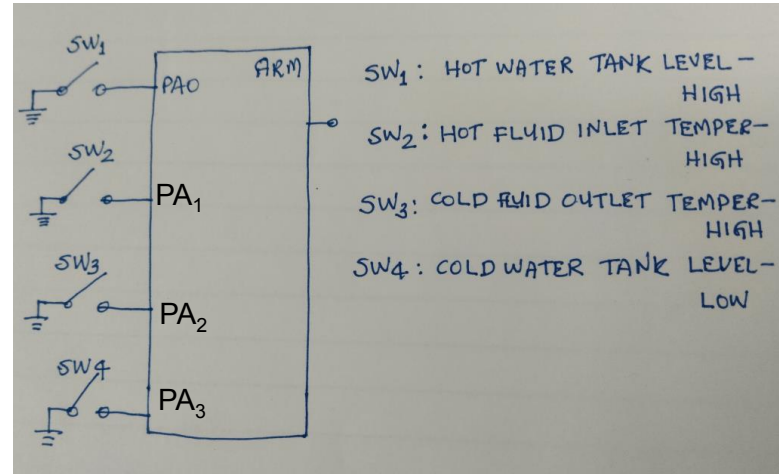 SW1
ARM
PA0
SW2
PA1
SW3
PA2
SW4
PA3
SW1: HOT WATER TANK LEVEL-
HIGH
SW2: HOT FLUID INLET TEMPER-
HIGH
SW3: COLD FLUID OUTLET TEMPER-
HIGH
SW4: COLD WATER TANK LEVEL-
LOW